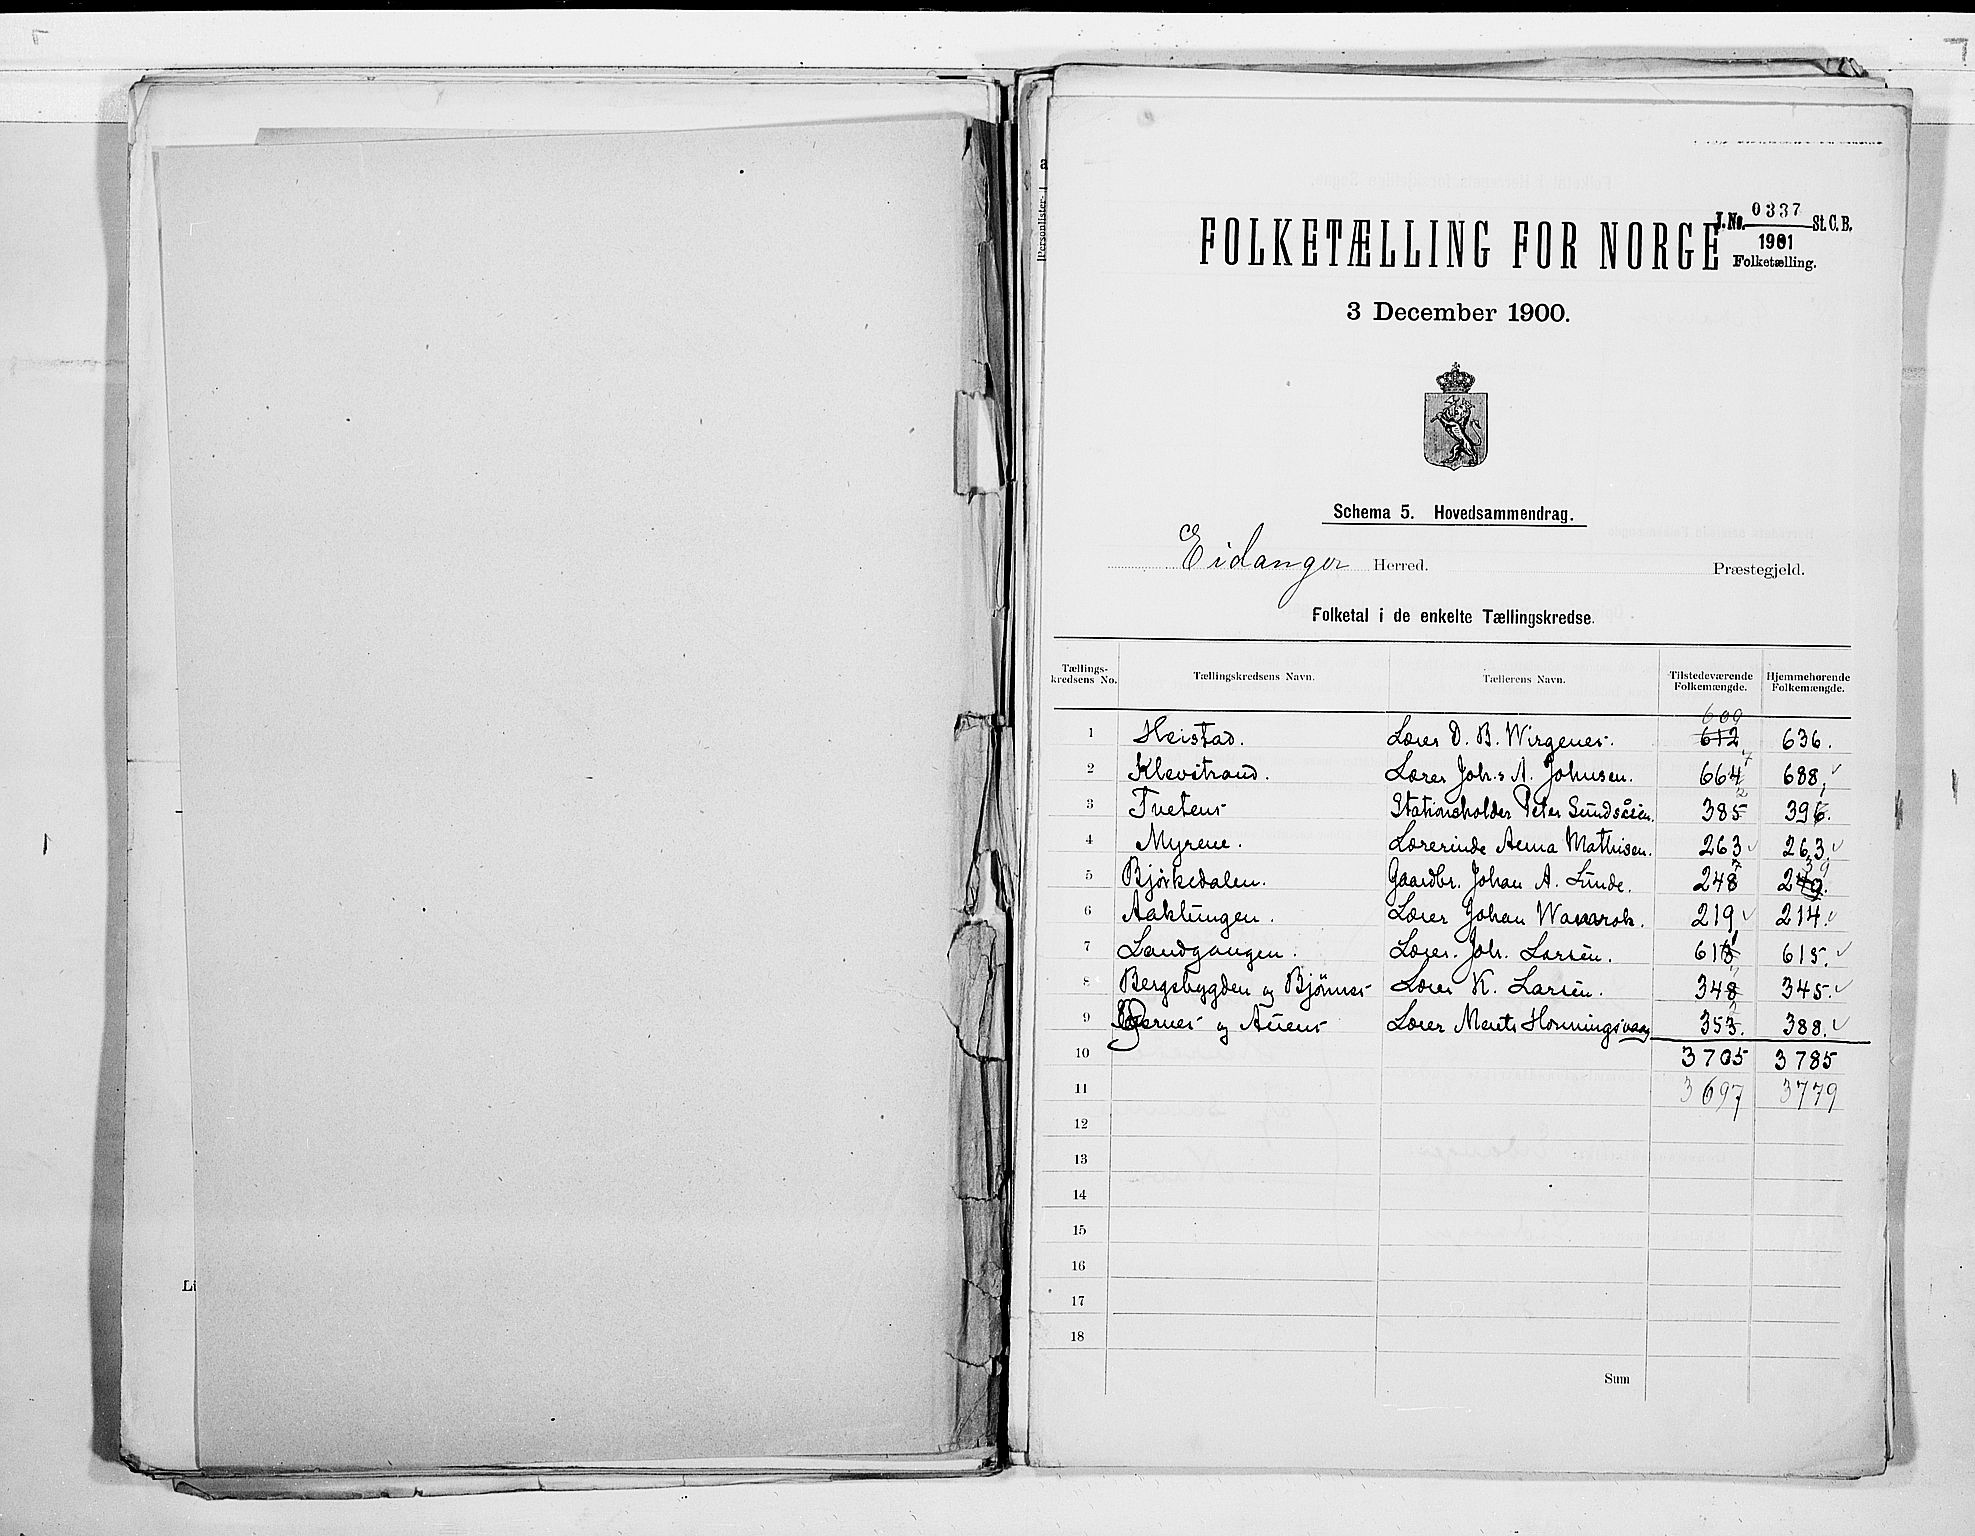 Li
a
Personlister
FOLKETÆLLING FOR NORGE
J. No. 0337 St. C. B.
1901
Folketælling.
3 December 1900.
Schema 5. Hovedsammendrag.
Eidanger Herred. Præstegjeld.
Folketal i de enkelte Tællingskredse.
Tællings-kredsens No. Tællingskredsens Navn. Tællerens Navn. Tilstedeværende Folkemængde. Hjemmehørende Folkemængde.
609
1 Heistad. Lærer D. B. Wirgenes. 612 636.
2 Klevstrand. Lærer Joh.s A. Johnsen. 664 7 688.
3 Tveten Stationsholder Peter Sundsåsen. 385 2 396. 1
4 Myrene. Lærerinde Anna Mathisen. 263 263
5 Bjørkedalen. Gaardbr. Johan A. Lunde. 248 7 249. 39
6 Aaklungen. Lærer Johan Wamrok. 219 214.
7 Landgangen. Lærer. Joh. Larsen. 613 1 615.
8 Bergsbygden og Bjønnes Lærer K. Larsen. 348 7 345.
9 og Auen Lærer Ments Honningsvaag 353. 2 388.
10 3705 3785
11 3697 3779
12
13
14
15
16
17
18
Sum